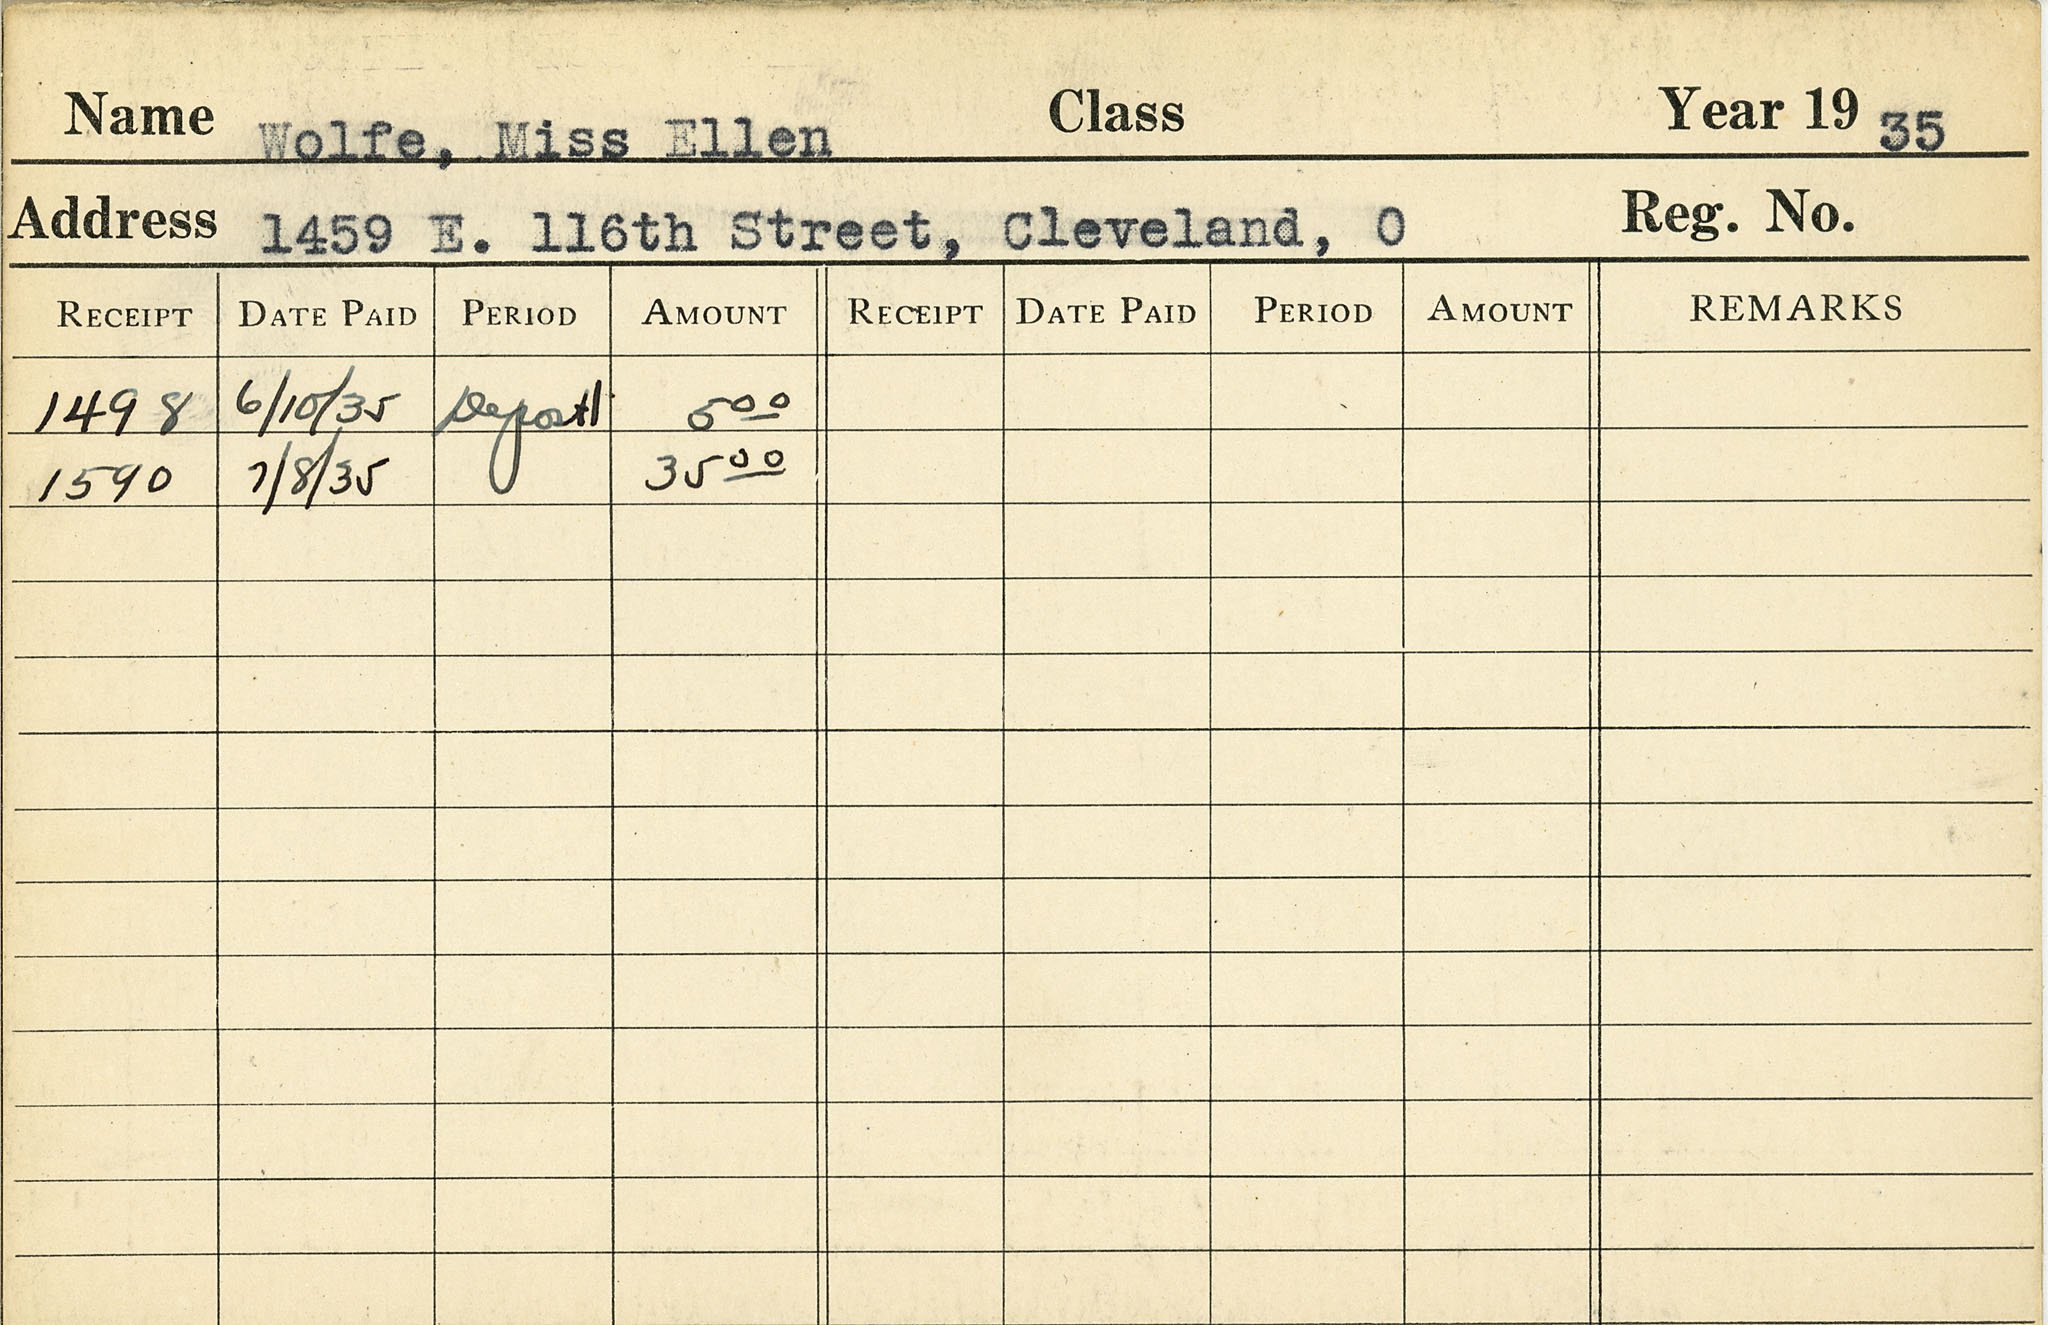 Name Wolfe, Miss Ellen Class Year 19 35
Address 1459 E. 116th Street, Cleveland, O Reg. No.
RECEIPT DATE PAID PERIOD AMOUNT RECEIPT DATE PAID PERIOD AMOUNT REMARKS
1498 6/10/35 Deposit 5 00
1590 7/8/35 35 00